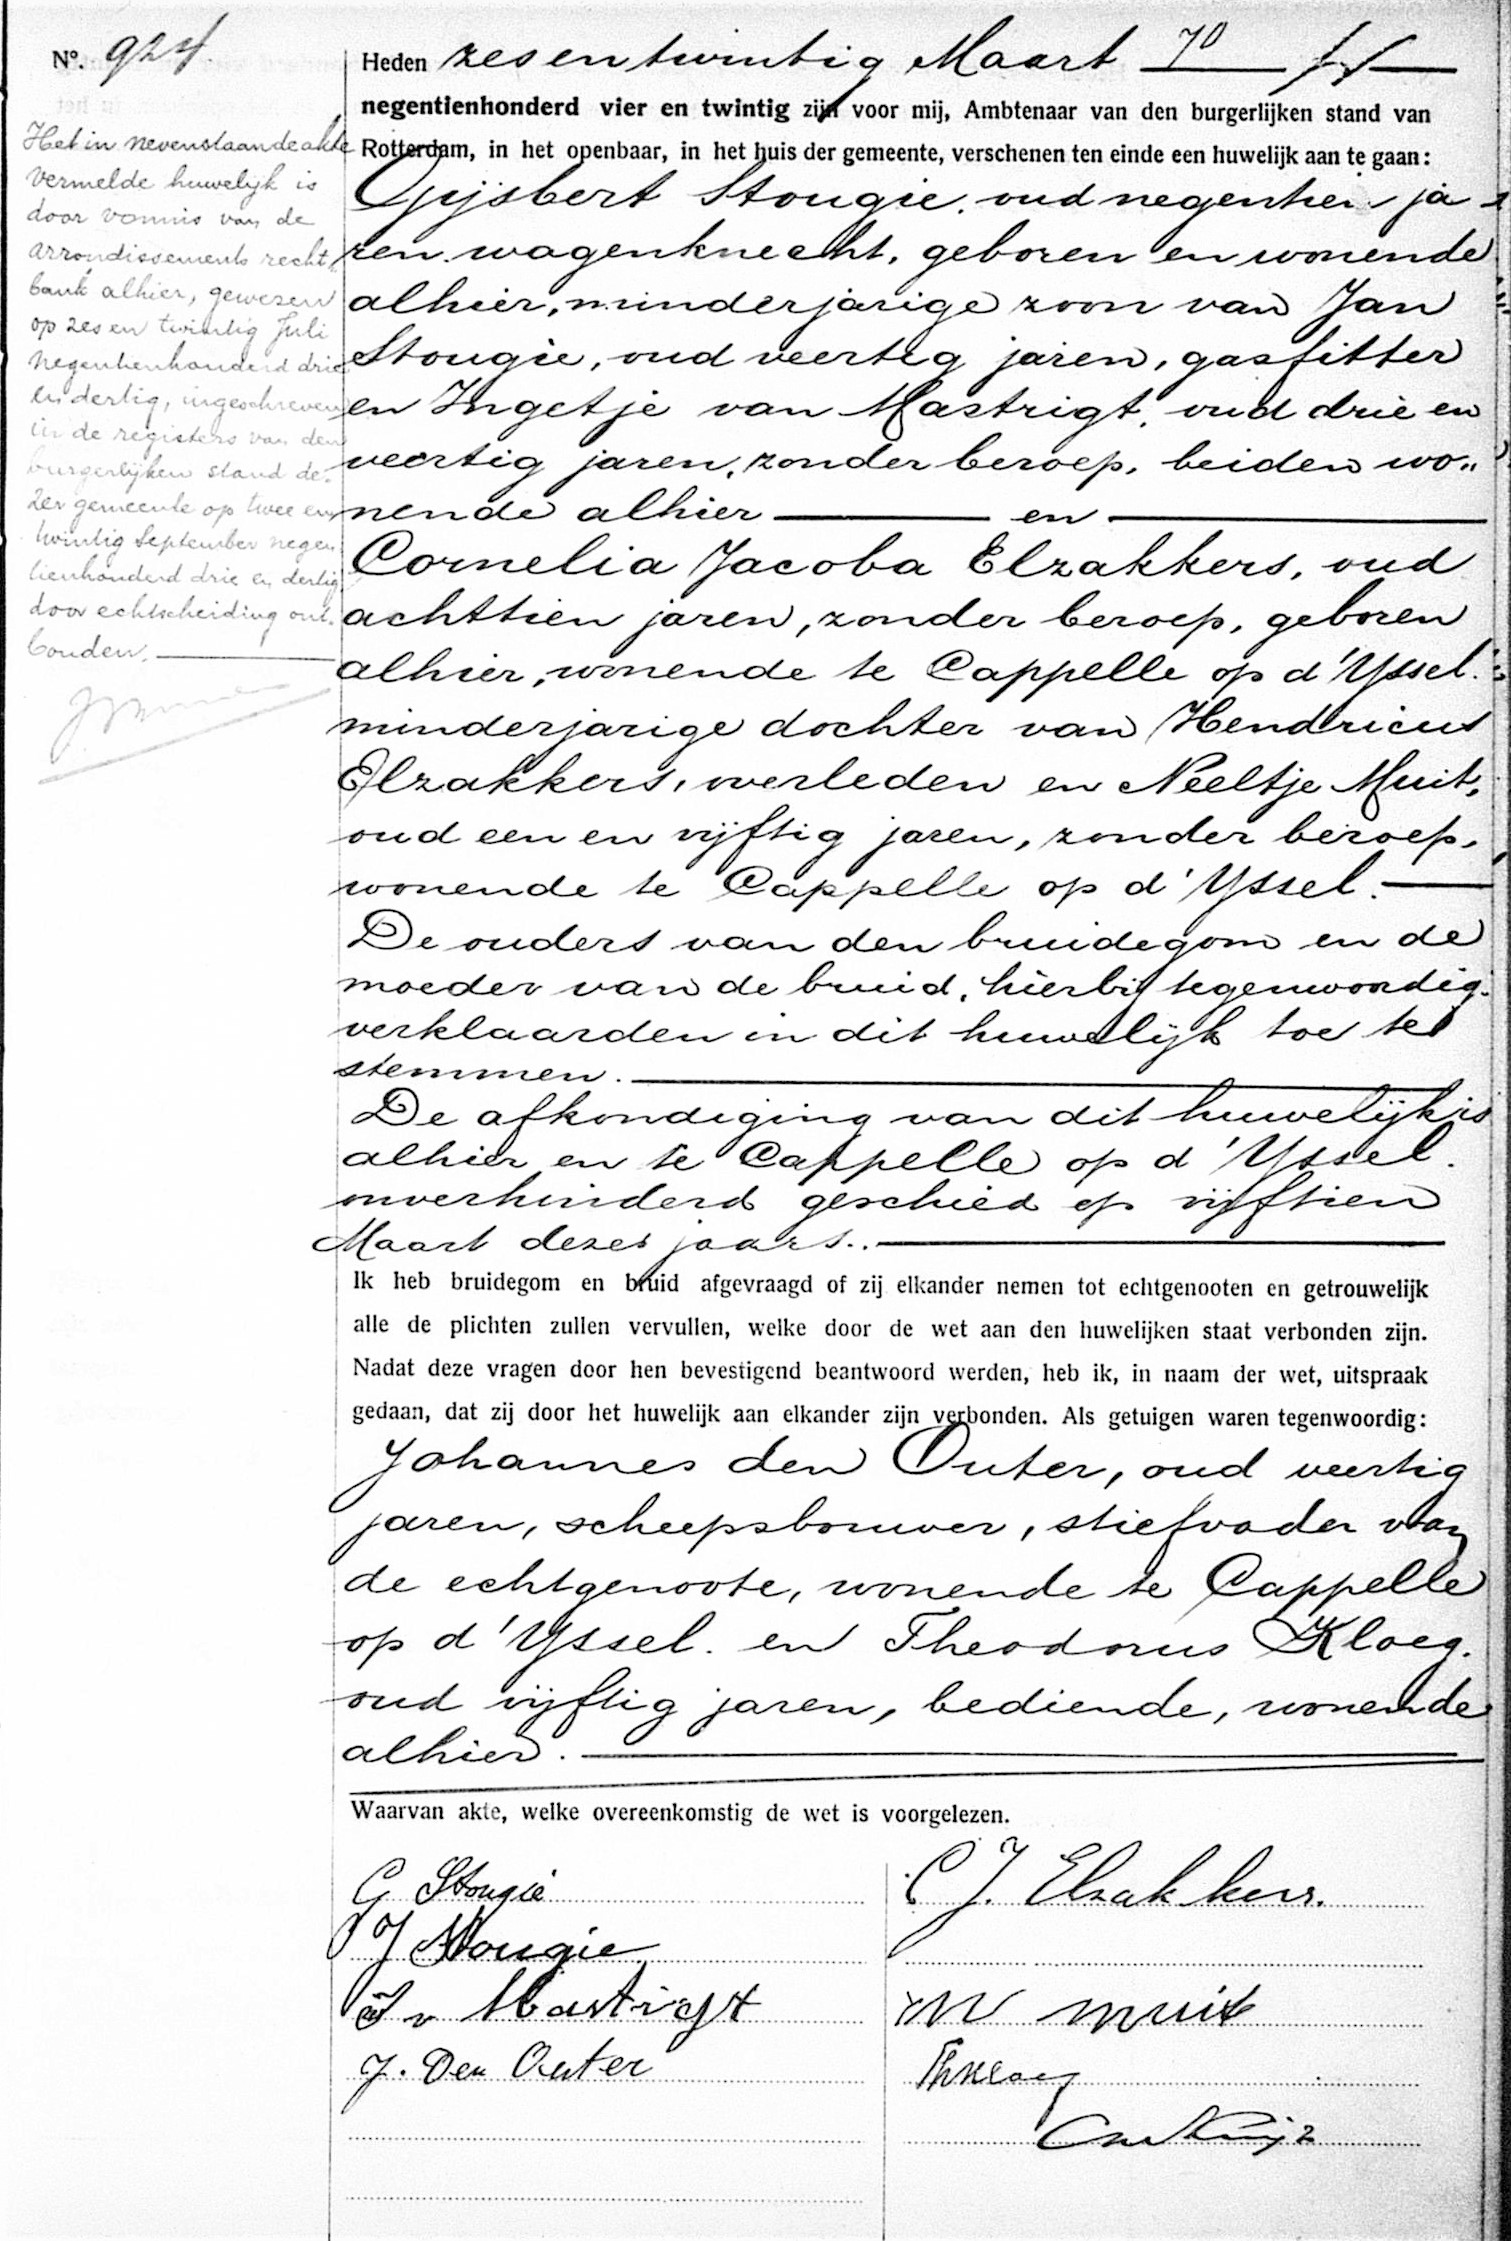 Nº. 924
Heden zes en twintig Maart 70
negentienhonderd vier en twintig zijn voor mij, Ambtenaar van den burgerlijken stand van
Rotterdam, in het openbaar, in het huis der gemeente, verschenen ten einde een huwelijk aan te gaan:
Gijsbert Stougie, oud negentien ja-
ren, wagenknecht, geboren en wonende
alhier, minderjarige zoon van Jan
Stougie, oud veertig jaren, gasfitter
en Ingetje van Mastrigt, oud drie en
veertig jaren, zonder beroep, beiden wo„
nende alhier en
Cornelia Jacoba Elzakkers, oud
achttien jaren, zonder beroep, geboren
alhier, wonende te Cappelle op d'Yssel.
minderjarige dochter van Hendricus
Elzakkers, overleden en Neeltje Muit,
oud een en vijftig jaren, zonder beroep,
wonende te Cappelle op d'Yssel.
De ouders van den bruidegom en de
moeder van de bruid, hierbij tegenwoordig.
verklaarden in dit huwelijk toe te
stemmen.
De afkondiging van dit huwelijk is
alhier en te Cappelle op d'Yssel.
onverhinderd geschied op vijftien
Maart dezes jaars.
Ik heb bruidegom en bruid afgevraagd of zij elkander nemen tot echtgenooten en getrouwelijk
alle de plichten zullen vervullen, welke door de wet aan den huwelijken staat verbonden zijn.
Nadat deze vragen door hen bevestigend beantwoord werden, heb ik, in naam der wet, uitspraak
gedaan, dat zij door het huwelijk aan elkander zijn verbonden. Als getuigen waren tegenwoordig:
Johannes den Outer, oud veertig
jaren, scheepsbouwer, stiefvader van
de echtgenoote, wonende te Cappelle
op d'Yssel. en Theodorus Kloeg.
oud vijftig jaren, bediende, wonende
alhier.
Waarvan akte, welke overeenkomstig de wet is voorgelezen.
G Stougie
C J. Elzakkers.
J Stougie
I v Mastrigt
N Muit
J. Den Outer
Th Kloeg
Het in nevenstaande akte
vermelde huwelijk is
door vonnis van de
arrondissements recht
bank alhier, gewezen
op zes en twintig Juli
negentienhonderd drie
en dertig, ingeschreven
in de registers van den
burgerlijken stand de-
zer gemeente op twee en
twintig September negen
tienhonderd drie en dertig
door echtscheiding ont-
bonden.